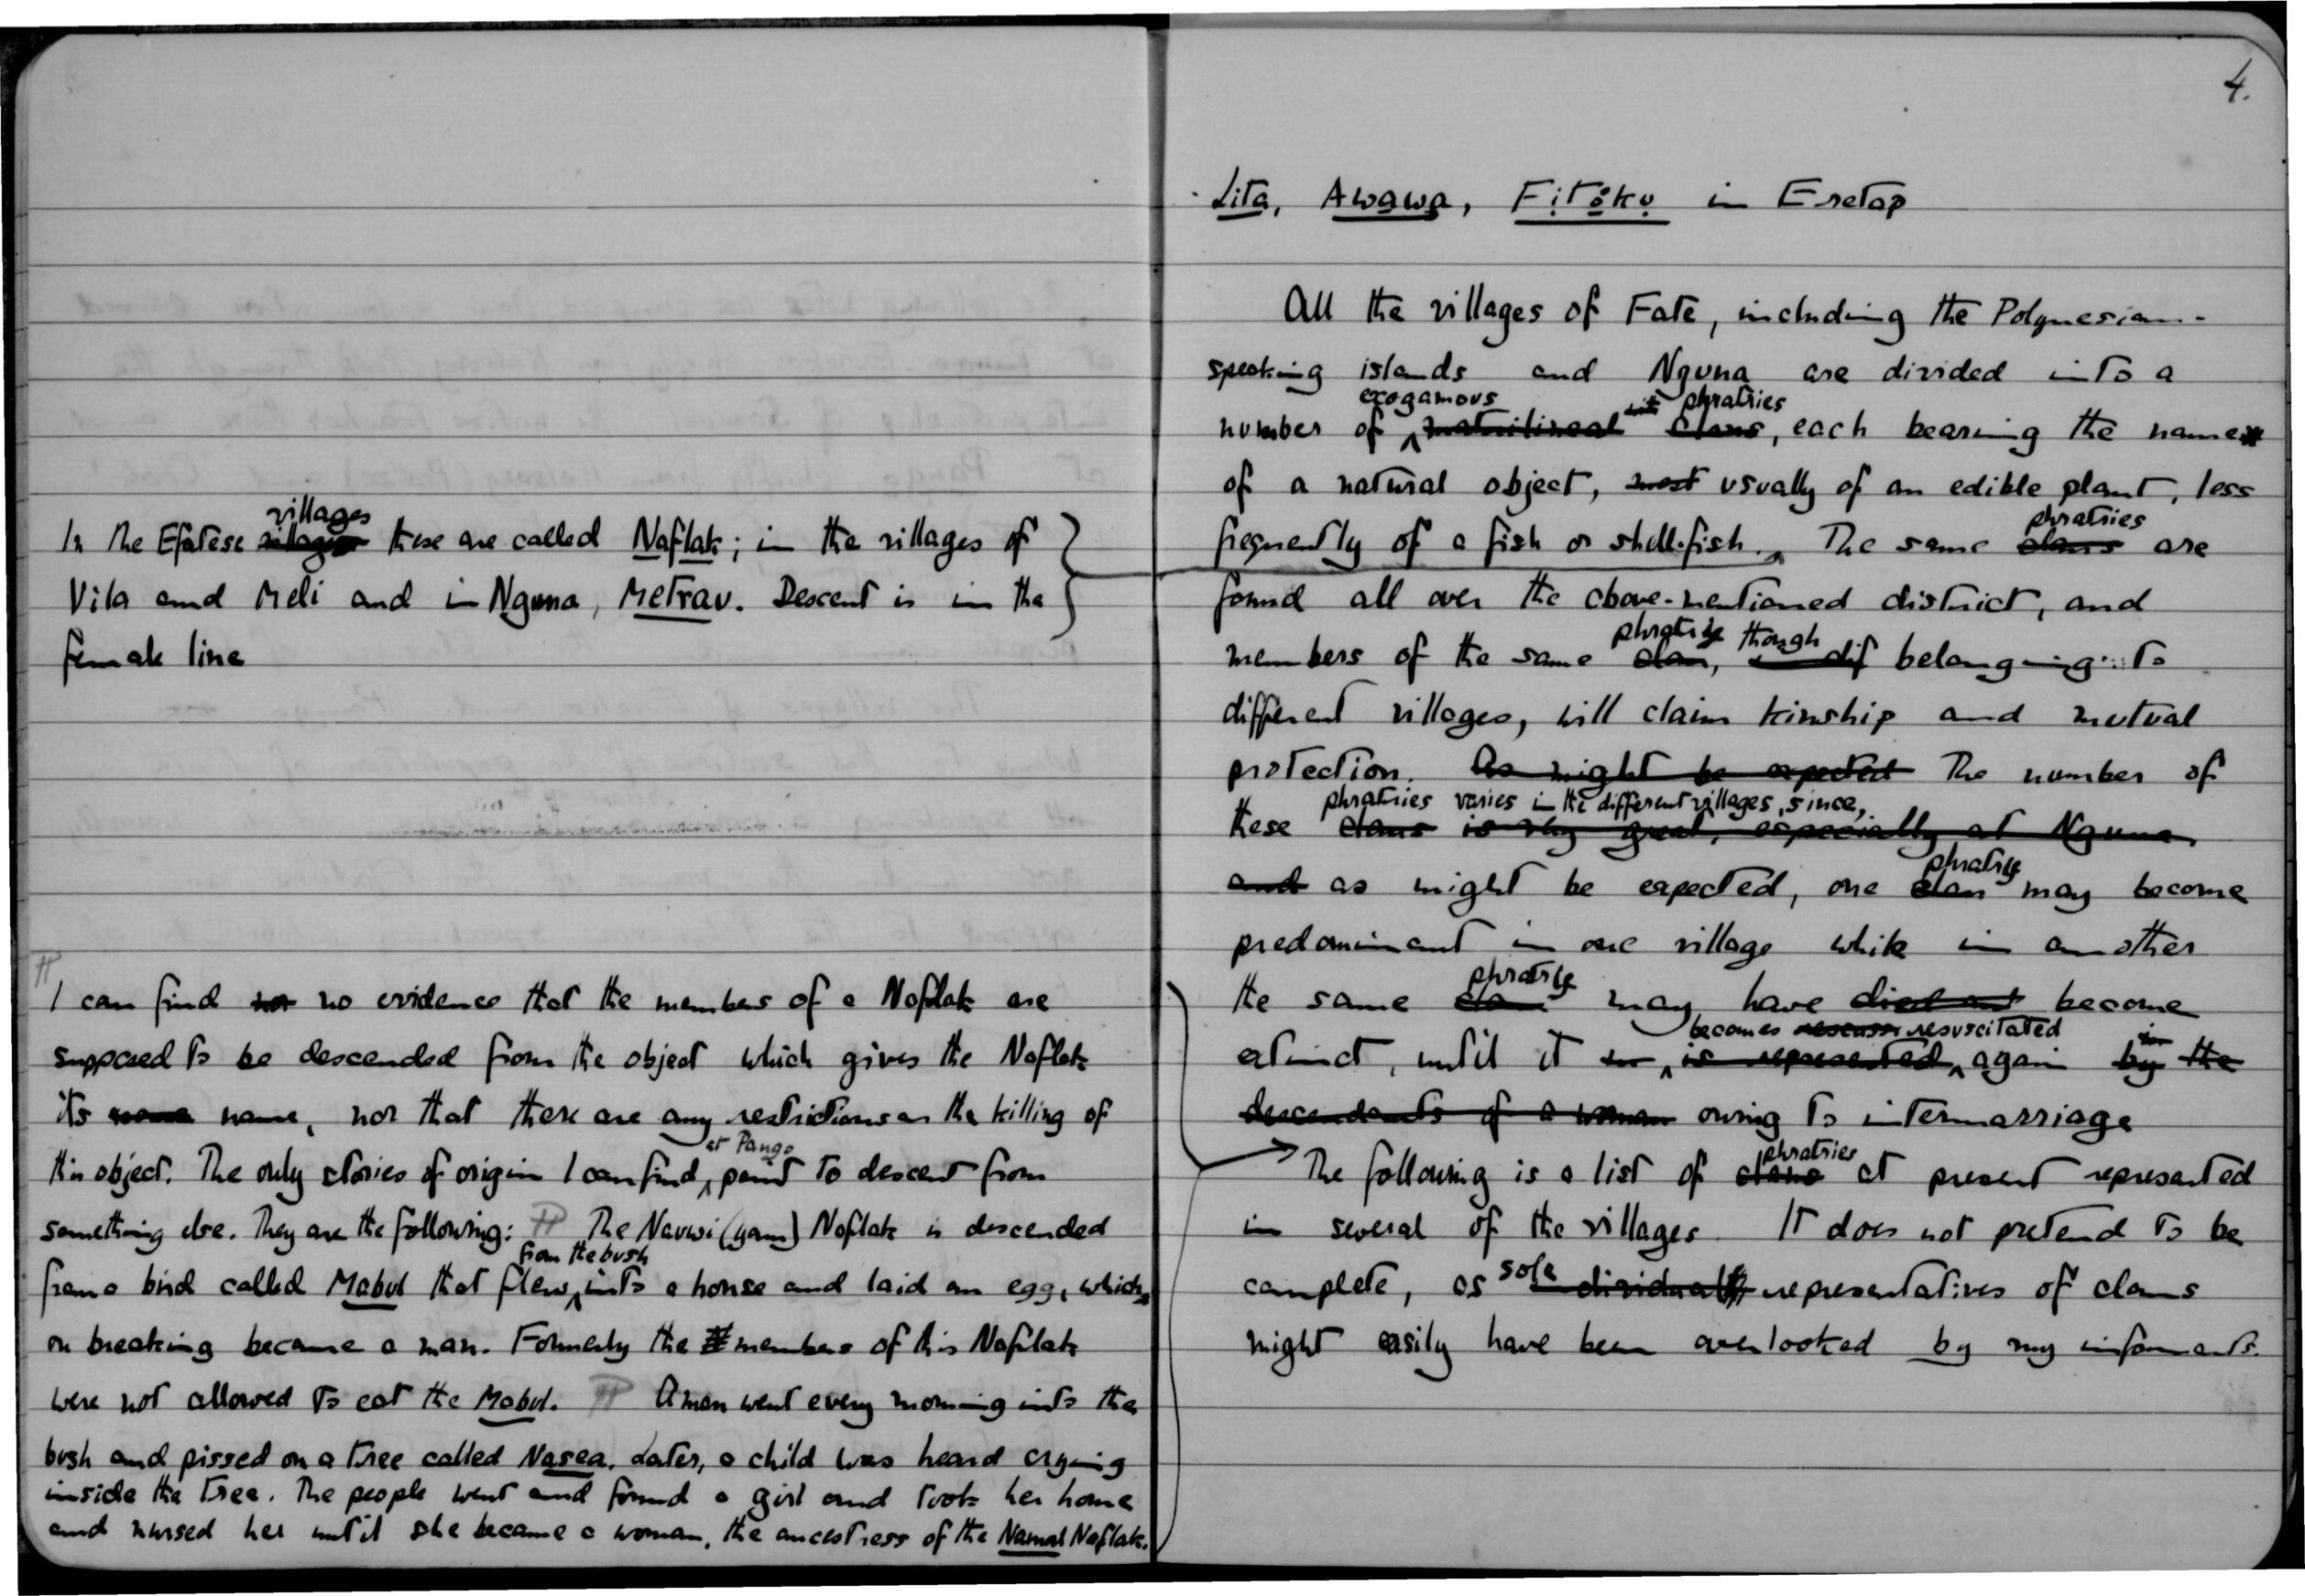 In the Efatese villages these are called Naflak; in the villages of
Vila and Meli and in Nguna, Metrav. Descent is in the
female line
I can find no evidence that the members of a Naflak are
supposed to be descended from the object which gives the Naflak
its name, nor that there are any restrictions on the killing of
this object. The only stories of origin I can find, at Pango point to descent from
something else. They are the following: The Nauwi (yam) Naflak is descended
from a bird called Mabul that flew from the bush into a house and laid an egg, which,
on breaking became a man. Formerly the members of this Naflak
were not allowed to eat the Mabul. A man went every morning into the
bush and pissed on a tree called Nasea. Later, a child was heard crying
inside the tree. The people went and found a girl and took her home
and nursed her until she became a woman, the ancestress of the Namal Naflak.
4.
Lita, Awawa, Fitoku in Eretap
All the villages of Fate, including the Polynesian-
speaking islands and Nguna are divided into a
number of exogamous matrilineal clans phratries, each bearing the name
of a natural object, most usually of an edible plant, less
frequently of a fish or shell-fish. The same clans phratries are
found all over the above-mentioned district, and
members of the same clan phratry, though dif belonging to
different villages, will claim kinship and mutual
protection. As might be expected The number of
these phratries varies in the different villages, since, clans is very great, especially at Nguna
and as might be expected, one clan phratry may become
predominant in one village while in another
the same clan phratry may have died out become
extinct, until it is represented becomes resuscitated again by the
descendants of a woman owing to intermarriage
The following is a list of clans phratries at present represented
in several of the villages. It does not pretend to be
complete, as sole individual representatives of clans
might easily have been overlooked by my informants.